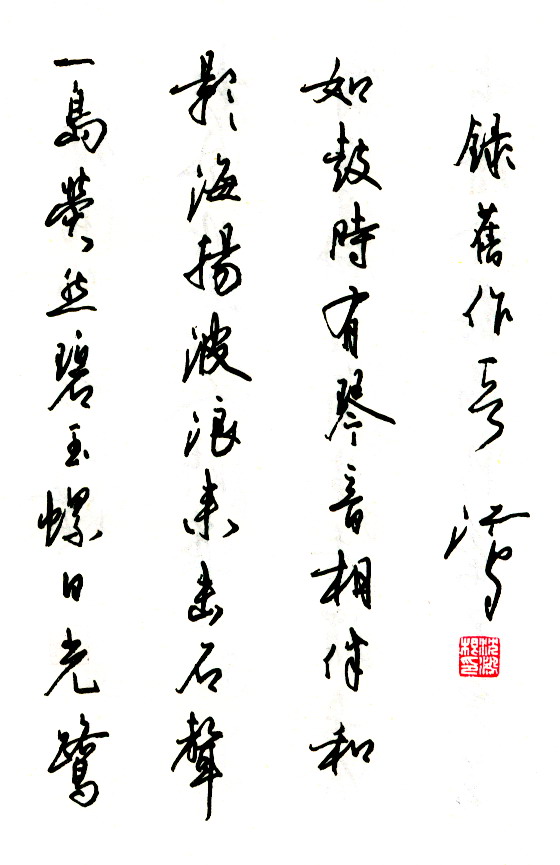 一島然碧玉螺日光鷺
影海揚波浪來擊石聲
如鼓時有琴音相伴和
錄舊作一首